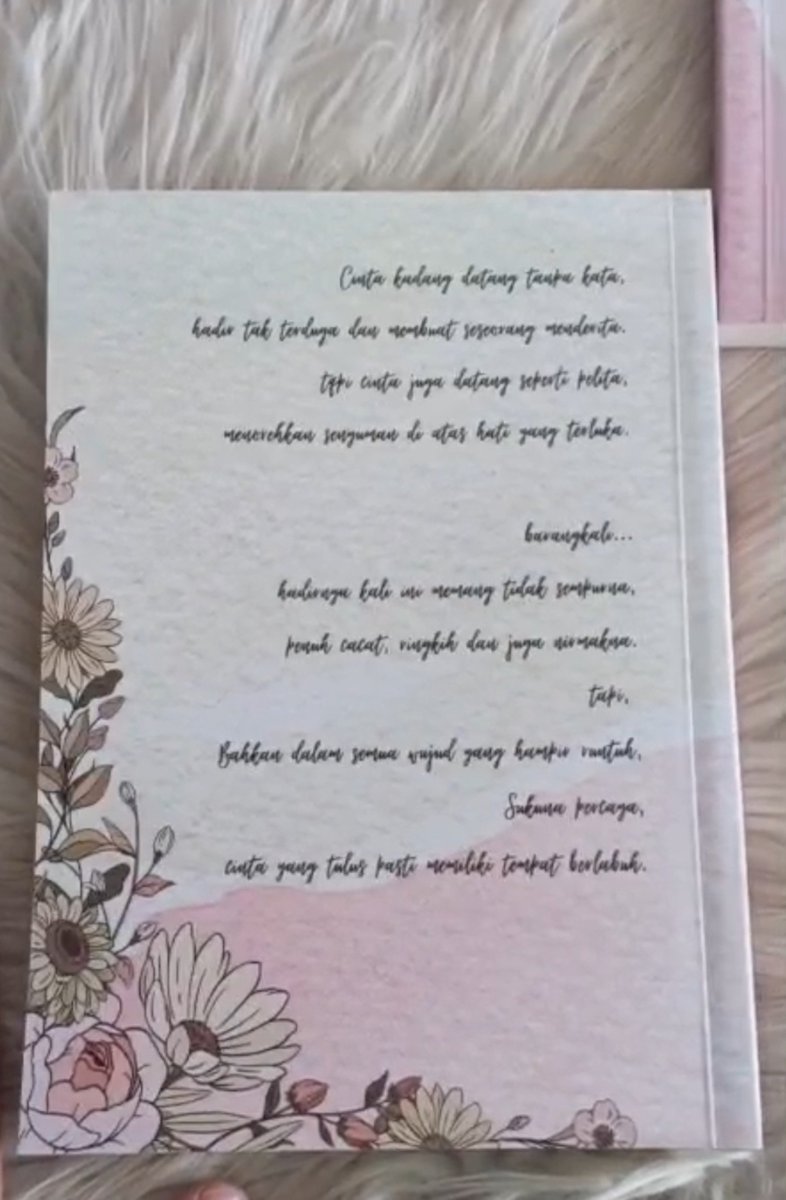 Cinta kadang datang tanpa kata,
hadir tak terduga dan membuat seseorang menderita.
tapi cinta juga datang seperti pelita,
menorehkan senyuman di atas hati yang terluka.
barangkali...
hadirnya kali ini memang tidak sempurna,
penuh cacat, ringkih dan juga nirmakna.
tapi,
Bahkan dalam semua wujud yang hampir runtuh,
Sukuna percaya,
cinta yang tulus pasti memiliki tempat berlabuh.